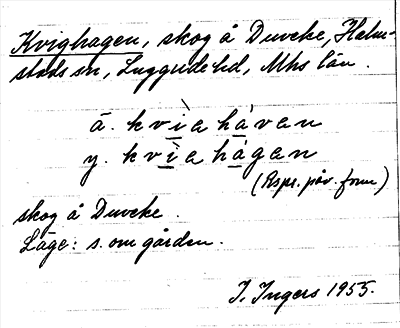 Kvighagen, skog å Duveke, Halm-
stads sn, Luggude hd, Mhs län.
ä. kvìa hàvan
y. kvìa hágan
(Rspr. påv. form)
skog å Duveke.
Läge: s. om gården.
I. Ingers 1955.